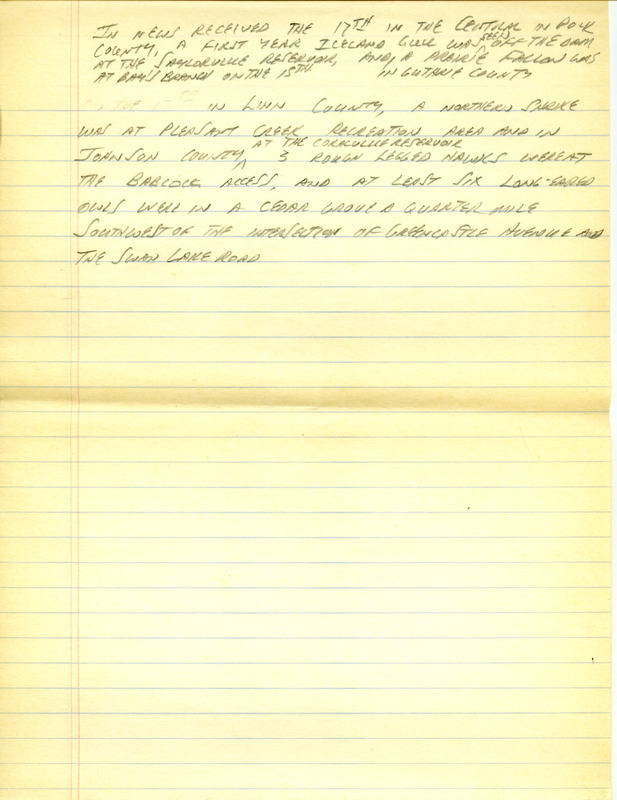 IN NEWS RECEIVED THE 17TH IN THE CENTRAL IN POLK
COUNTY, A FIRST YEAR ICELAND GULL WAS SEEN OFF THE DAM
AT THE SAYLORVILLE RESERVOIR, AND, A PRAIRIE FALCON WAS
AT BAYS BRANCH ON THE 15TH IN GUTHRIE COUNTY
IN LINN COUNTY, A NORTHERN SHRIKE
WAS AT PLEASANT CREEK RECREATION AREA AND IN
JOHNSON COUNTY, AT THE CORALVILLE RESERVOIR 3 ROUGH LEGGED HAWKS WERE AT
THE BABCOCK ACCESS, AND AT LEAST SIX LONG-EARED
OWLS WERE IN A CEDAR GROVE A QUARTER MILE
SOUTHWEST OF THE INTERSECTION OF GREENCASTLE AVENUE AND
THE SWAN LAKE ROAD